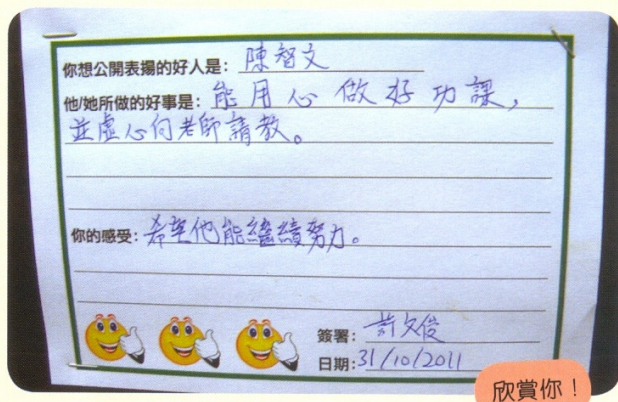 你想公開表揚的好人是：陳智文
他/她所做的好事是：能用心做好功課，
並虛心向老師請教。
你的感受：希望他能繼續努力。
簽署：許文俊
日期：31/10/2011
欣賞你！